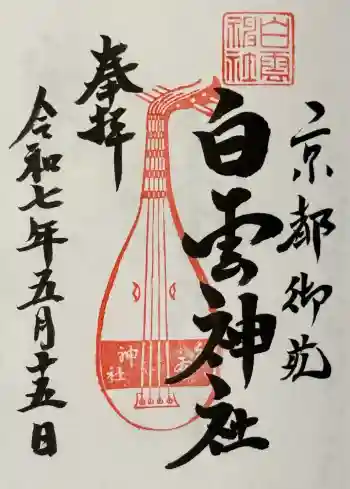 京都御苑
白雲神社
奉拝
令和七年五月十五日
白雲神社
神社